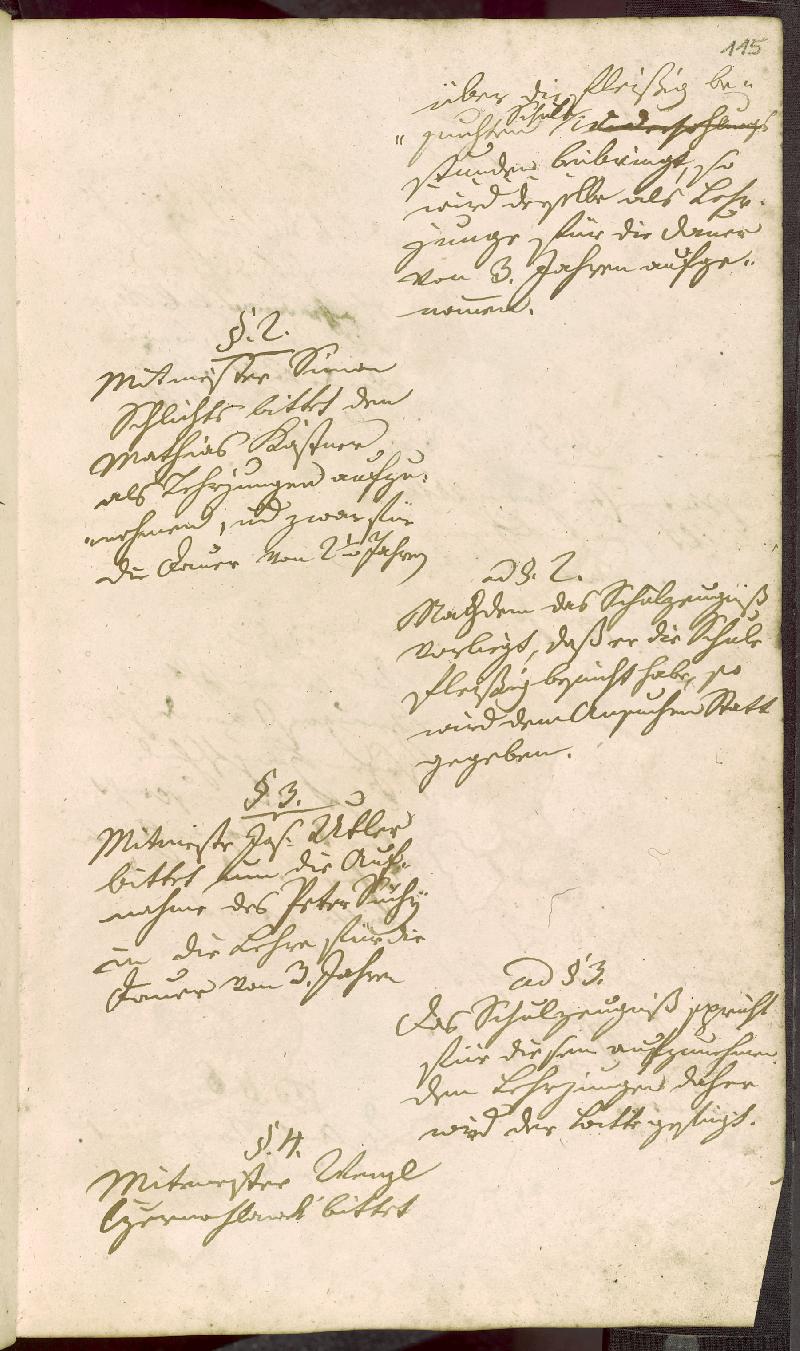 115
über die fleißig be„
„suchten Schul
stunden beibringt, so
wird derselbe als Lehr„
junge für die Dauer
von 3. Jahren aufge„
nom̅en.
§. 2.
Mitmeister Simon
Schlichts bittet den
Mathias Kästner
als Lehrjungen aufzu„
„nehmen, und zwar für
die Dauer von 2 Jahren
ad §. 2.
Nachdem das Schulzeugniß
vorliegt, daß er die Schule
fleißig besucht habe, so
wird dem Ansuchen Statt
gegeben.
§ 3.
Mitmeister Jos. Adler
bittet um die Auf„
nahme des Peter Suchÿ
in die Lehre für die
Dauer von 3. Jahren
ad § 3.
Das Schulzeugniß spricht
für diesen aufzunehmen„
den Lehrjungen daher
wird der Bitte gefügt.
§. 4.
Mitmeister Wenzl
bittet